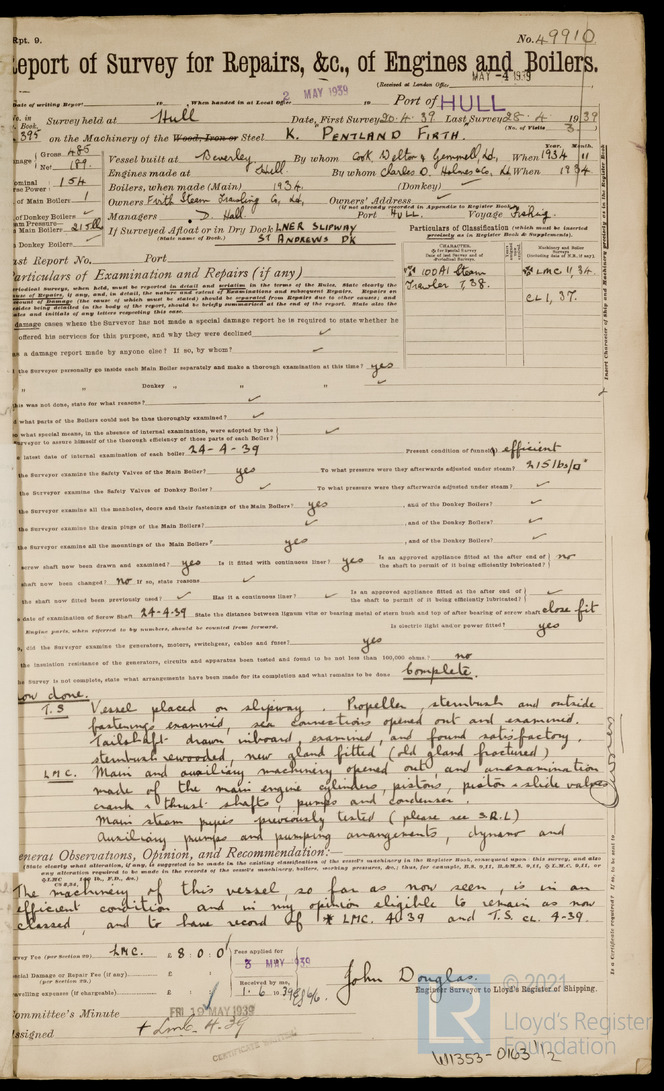 Rpt. 9.
No. 49910
Report of Survey for Repairs, &c., of Engines and Boilers.
(Received at London Office
MAY -4 1939
Date of writing Report 19 When handed in at Local Office 2 MAY 1939 19 Port of HULL
No. in Survey held at Hull Date, First Survey 20.4.39 Last Survey 28.4.1939
Book. (No. of Visits 3.)
395 on the Machinery of the Wood, Iron or Steel K. PENTLAND FIRTH.
Gross 485
Net 189.
Vessel built at Beverley By whom Cook Welton & Gemmell Ld, When 1934 11
Year. Month.
Engines made at Hull By whom Charles D. Holmes & Co, Ld When 1934
Nominal Power 154
Boilers, when made (Main) 1934. (Donkey)
of Main Boilers 1
Owners Firth Steam Trawling Co, Ld, Owners' Address
(if not already recorded in Appendix to Register Book.)
of Donkey Boilers
Managers D. Hall Port HULL. Voyage Fishing.
Main Boilers 215 lb
If Surveyed Afloat or in Dry Dock LNER SLIPWAY
(State name of Dock.) ST ANDREWS DK
Donkey Boilers
Particulars of Classification (which must be inserted
precisely as in Register Book & Supplements).
Last Report No. Port
100A1 Steam
Trawler 7,38.
LMC 11,34.
CL 1,37.
Particulars of Examination and Repairs (if any)
damage cases where the Surveyor has not made a special damage report he is required to state whether he
offered his services for this purpose, and why they were declined
a damage report made by anyone else? If so, by whom?
the Surveyor personally go inside each Main Boiler separately and make a thorough examination at this time? yes
" " Donkey " " "
this was not done, state for what reasons?
what parts of the Boilers could not be thus thoroughly examined?
what special means, in the absence of internal examination, were adopted by the
Surveyor to assure himself of the thorough efficiency of those parts of each Boiler?
latest date of internal examination of each boiler 24-4-39 Present condition of funnel efficient
the Surveyor examine the Safety Valves of the Main Boiler? yes To what pressure were they afterwards adjusted under steam? 215 lbs/□"
the Surveyor examine the Safety Valves of Donkey Boiler? To what pressure were they afterwards adjusted under steam?
the Surveyor examine all the manholes, doors and their fastenings of the Main Boilers? yes , and of the Donkey Boilers?
the Surveyor examine the drain plugs of the Main Boilers? , and of the Donkey Boilers?
the Surveyor examine all the mountings of the Main Boilers? yes , and of the Donkey Boilers?
screw shaft now been drawn and examined? yes Is it fitted with continuous liner? yes Is an approved appliance fitted at the after end of
the shaft to permit of it being efficiently lubricated? no
shaft now been changed? no If so, state reasons
the shaft now fitted been previously used? Has it a continuous liner? Is an approved appliance fitted at the after end of
the shaft to permit of it being efficiently lubricated?
date of examination of Screw Shaft 24-4-39 State the distance between lignum vitæ or bearing metal of stern bush and top of after bearing of screw shaft close fit
Engine parts, when referred to by numbers, should be counted from forward. Is electric light and/or power fitted? yes
so, did the Surveyor examine the generators, motors, switchgear, cables and fuses? yes
the insulation resistance of the generators, circuits and apparatus been tested and found to be not less than 100,000 ohms? no
the Survey is not complete, state what arrangements have been made for its completion and what remains to be done. Complete.
now done.
T.S Vessel placed on slipway. Propeller, sternbush and outside
fastenings examined, sea connections opened out and examined.
Tailshaft drawn inboard, examined, and found satisfactory
sternbush rewooded, new gland fitted (old gland fractured)
LMC. Main and auxiliary machinery opened out, and an examination
made of the main engine cylinders, pistons, piston & slide valves
crank & thrust shafts, pumps and condenser.
Main steam pipes previously tested (please see S.R.L)
Auxiliary pumps and pumping arrangements, dynamo and
General Observations, Opinion, and Recommendation:—
(State clearly what alteration, if any, is suggested to be made in the existing classification of the vessel's machinery in the Register Book, consequent upon this survey, and also
any alteration required to be made in the records of the vessel's machinery, boilers, working pressures, &c.; thus, for example, B.S. 9,11, B.&M.S. 9,11, L.M.C. 9,11, or
The machinery of this vessel, so far as now seen, is in an
efficient condition and in my opinion eligible to remain as now
classed, and to have record of LMC. 4.39 and T.S. CL. 4-39.
Survey Fee (per Section 29) LMC. £ 8:0:0 Fees applied for
3 MAY 1939
Special Damage or Repair Fee (if any) £ : :
(per Section 29.)
Received by me,
Travelling expenses (if chargeable) £ : : 1.6.1939
John Douglas.
Engineer Surveyor to Lloyd's Register of Shipping.
Committee's Minute FRI 19 MAY 1939
Assigned + LMC. 4.39
CERTIFICATE WRITTEN
© 2021
LR
Lloyd's Register
Foundation
W11353-0163 1/2